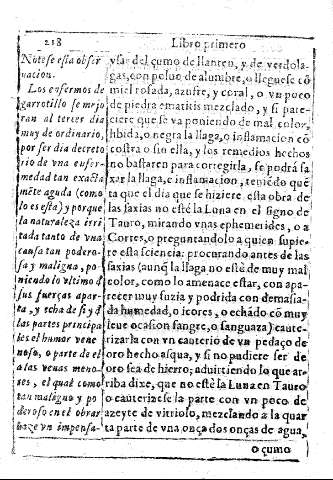 218
Libro primero
Notese esta obser
uacion.
Los enfermos de
garrotillo se mejo
ran al tercer dia
muy de ordinario,
por ser dia decreto
rio de vna enfer-
medad tan exacta
mēte aguda (como
lo es esta) y porque
la naturaleza irri
tada tanto de vna
causa tan podero-
sa y maligna, po-
niendo lo vltimo d̄
sus fuerças apar-
ta, y echa de si y d̄
las partes principa
les el humor vene
noso, o parte de el
a las venas meno-
res, el qual como
tan maligno y po
deroso en el obrar
haze vn impensa-
vsar del çumo de llanten, y de verdola-
gas, con poluo de alumbre, o lleguese cō
miel rosada, azufre, y coral, o vn poco
de piedra ematitis mezclado, y si pare-
ciere que se va poniendo de mal color,
libida, o negra la llaga, o inflamacion cō
costra o sin ella, y los remedios hechos
no bastaren para corregirla, se podrá sa
xar la llaga, e inflamacion, teniēdo quē
ta que el dia que se hiziere esta obra de
las saxias no esté la Luna en el signo de
Tauro, mirando vnas ephemerides, o a
Cortes, o preguntandolo a quien supie-
re esta sciencia: procurando antes de las
saxias (aunq̄ la llaga no estè de muy mal
color, como lo amenace estar, con apa-
recer muy suzia y podrida con demasia-
da humedad, o icores, o echādo cō muy
leue ocasion sangre, o sanguaza) caute-
rizarla con vn cauterio de vn pedaço de
oro hecho asqua, y si no pudiere ser de
oro sea de hierro; aduirtiendo lo que ar-
riba dixe, que no estè la Luna en Tauro
o cauterizese la parte con vn poco de
azeyte de vitriolo, mezclando a la quar
ta parte de vna onça dos onças de agua,
o çumo